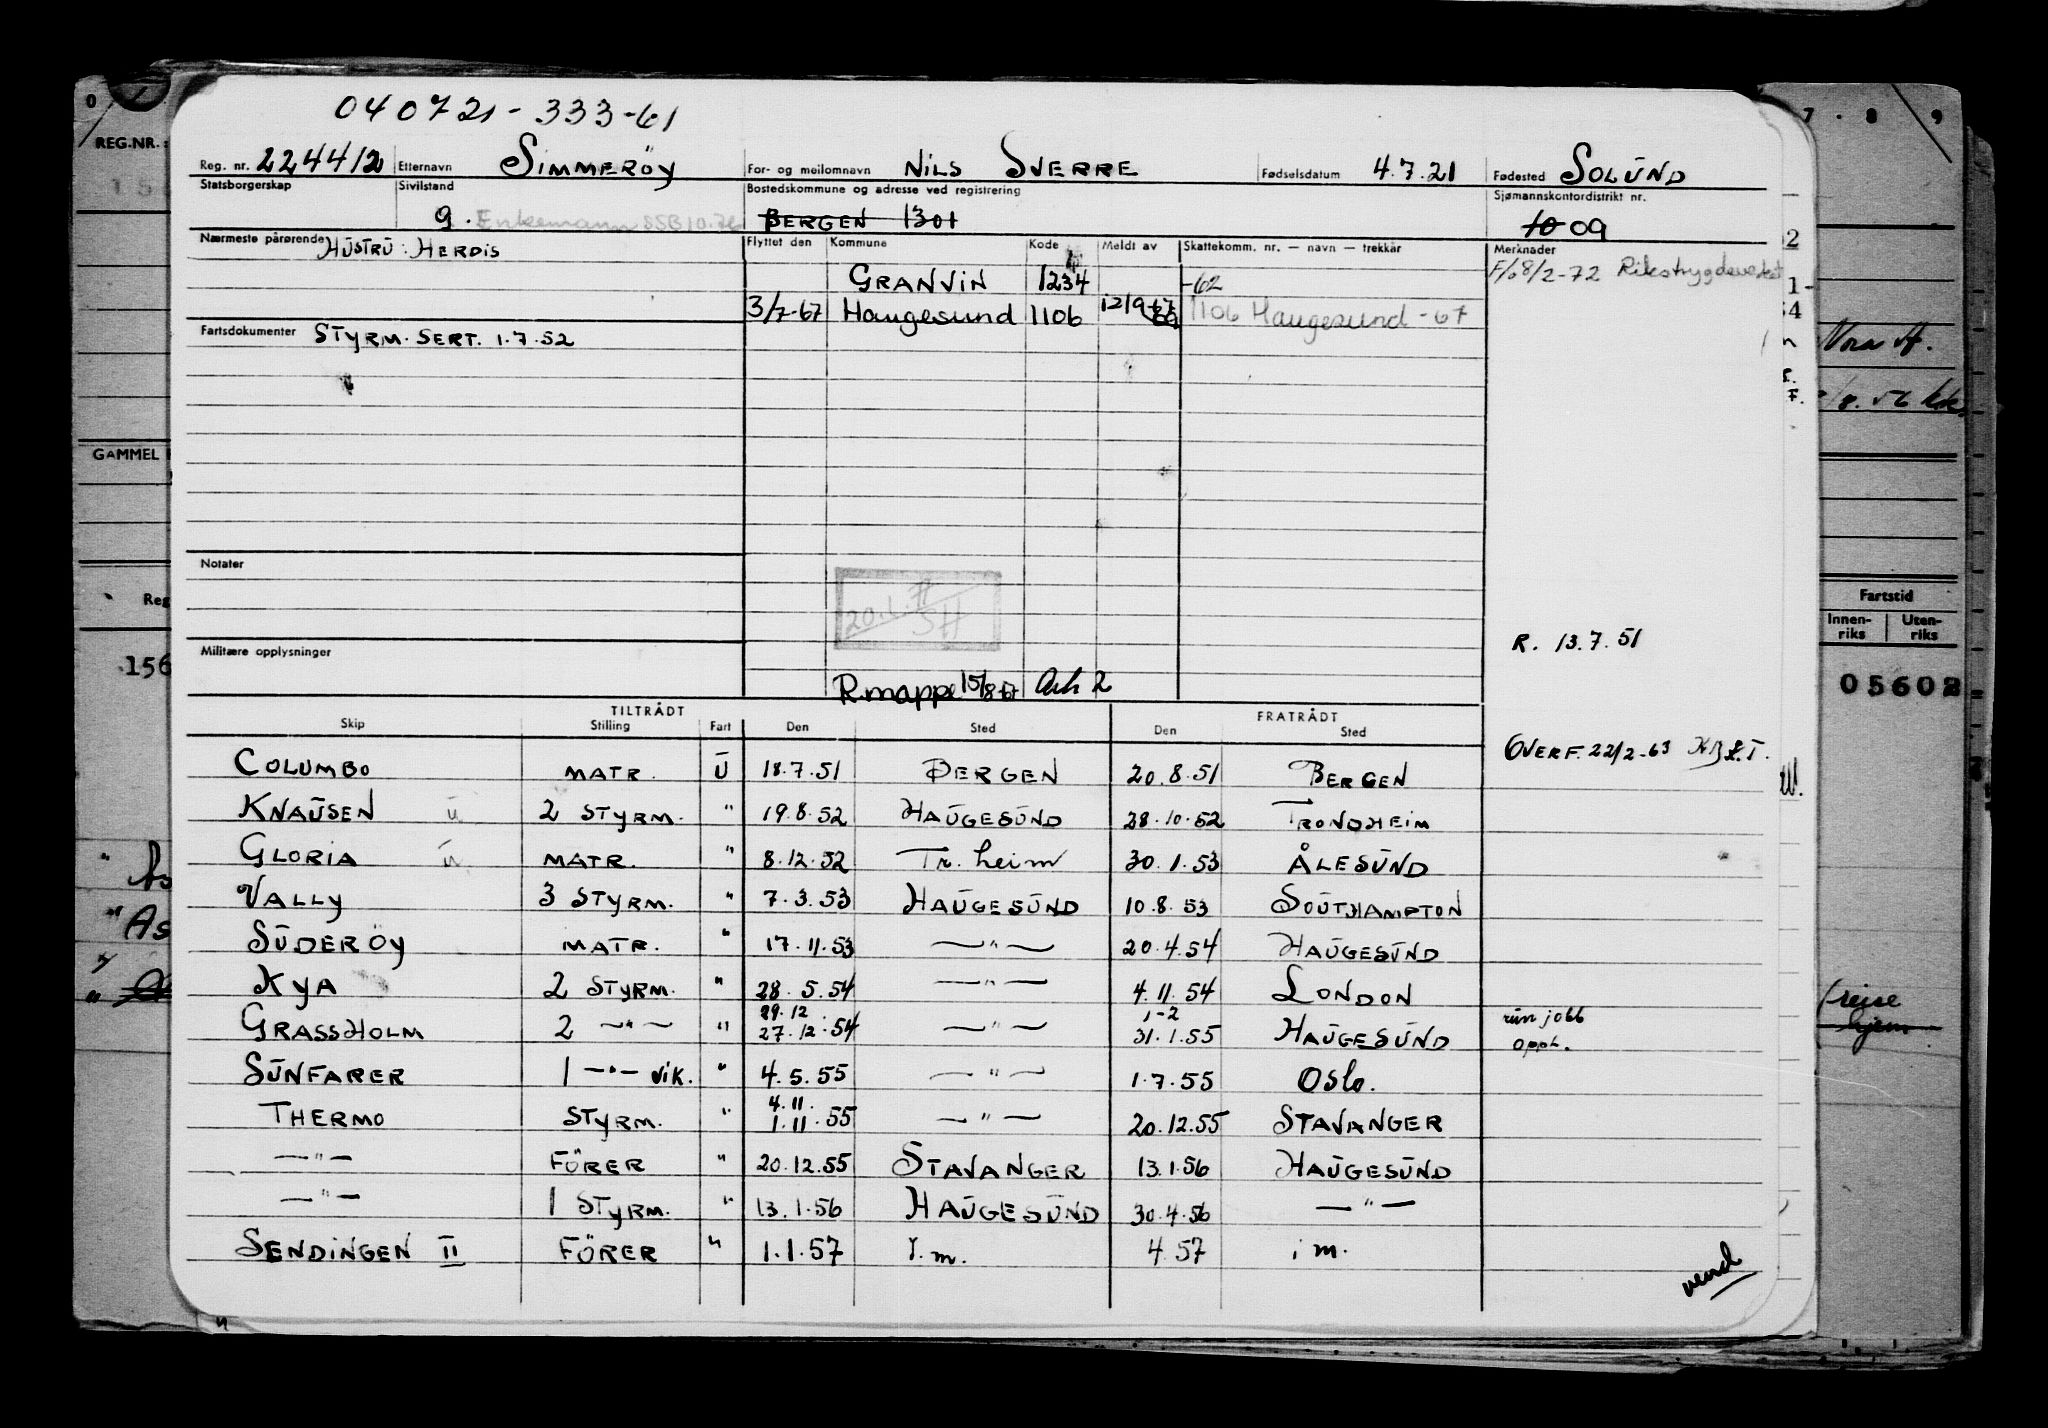 040721-333-61
Reg. nr. 22441/2 Etternavn SIMMERÖY For- og mellomnavn NILS SVERRE Fødselsdatum 4.7.21 Fødested SOLUND
Statsborgerskap Sivilstand g. Enkemann SSB 10. Bostedskommune og adresse ved registrering BERGEN 1301 Sjømannskontordistrikt nr. 10 09
Nærmeste pårørende HUSTRU: HERDIS Flyttet den Kommune Kode Meldt av Skattekomm. nr. — navn — trekkår Merknader
GRANVIN 1234 -62 F/ 8/2-72 Rikstrygdeverket
3/7-67 Haugesund 1106 12/9-67 1106 Haugesund -67
Fartsdokumenter STYRM. SERT. 1.7.52
Notater
20.1. SH
R. 13.7.51
Militære opplysninger
R.mappe 15/8-67 Ark 2
TILTRÅDT FRATRÅDT
Skip Stilling Fart Den Sted Den Sted
OVERF. 22/2-63
COLUMBO MATR. U 18.7.51 BERGEN 20.8.51 BERGEN
KNAUSEN u 2 STYRM. " 19.8.52 HAUGESUND 28.10.52 TRONDHEIM
GLORIA u MATR. " 8.12.52 Tr.heim 30.1.53 ÅLESUND
VALLY 3 STYRM. " 7.3.53 HAUGESUND 10.8.53 SOUTHAMPTON
SUDERÖY MATR. " 17.11.53 —"— 20.4.54 HAUGESUND
KYA 2 STYRM. " 28.5.54 —"— 4.11.54 LONDON
29.12 1-2 run jobb
GRASSHOLM 2 —"— " 27.12.54 —"— 31.1.55 HAUGESUND opph.
SUNFARER 1 —"— VIK. " 4.5.55 —"— 1.7.55 Oslo.
4.11.
THERMO STYRM. " 1.11.55 —"— 20.12.55 STAVANGER
—"— FÖRER " 20.12.55 STAVANGER 13.1.56 HAUGESUND
—"— 1 STYRM. " 13.1.56 HAUGESUND 30.4.56 —"—
SENDINGEN II FÖRER " 1.1.57 I.m. 4.57 i m.
vend
REG.NR.:
GAMMEL
Reg
156
As
As
7 . 8 9
Nora
/8.56
Fartstid
Innen-riks Uten-riks
05602
reise
hjem